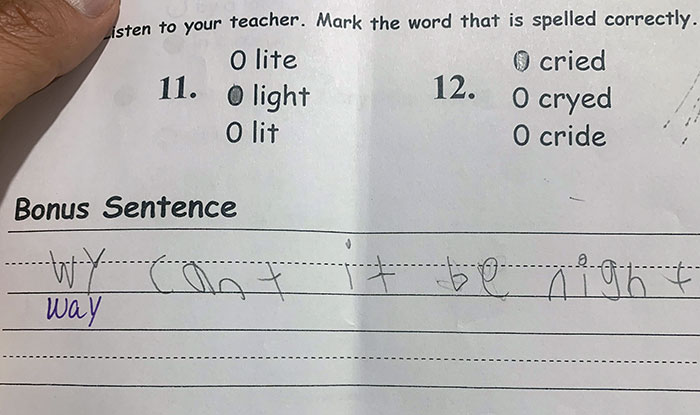 isten to your teacher. Mark the word that is spelled correctly.
11. O lite
O light
O lit
12. O cried
O cryed
O cride
Bonus Sentence
wy cant it be night
way